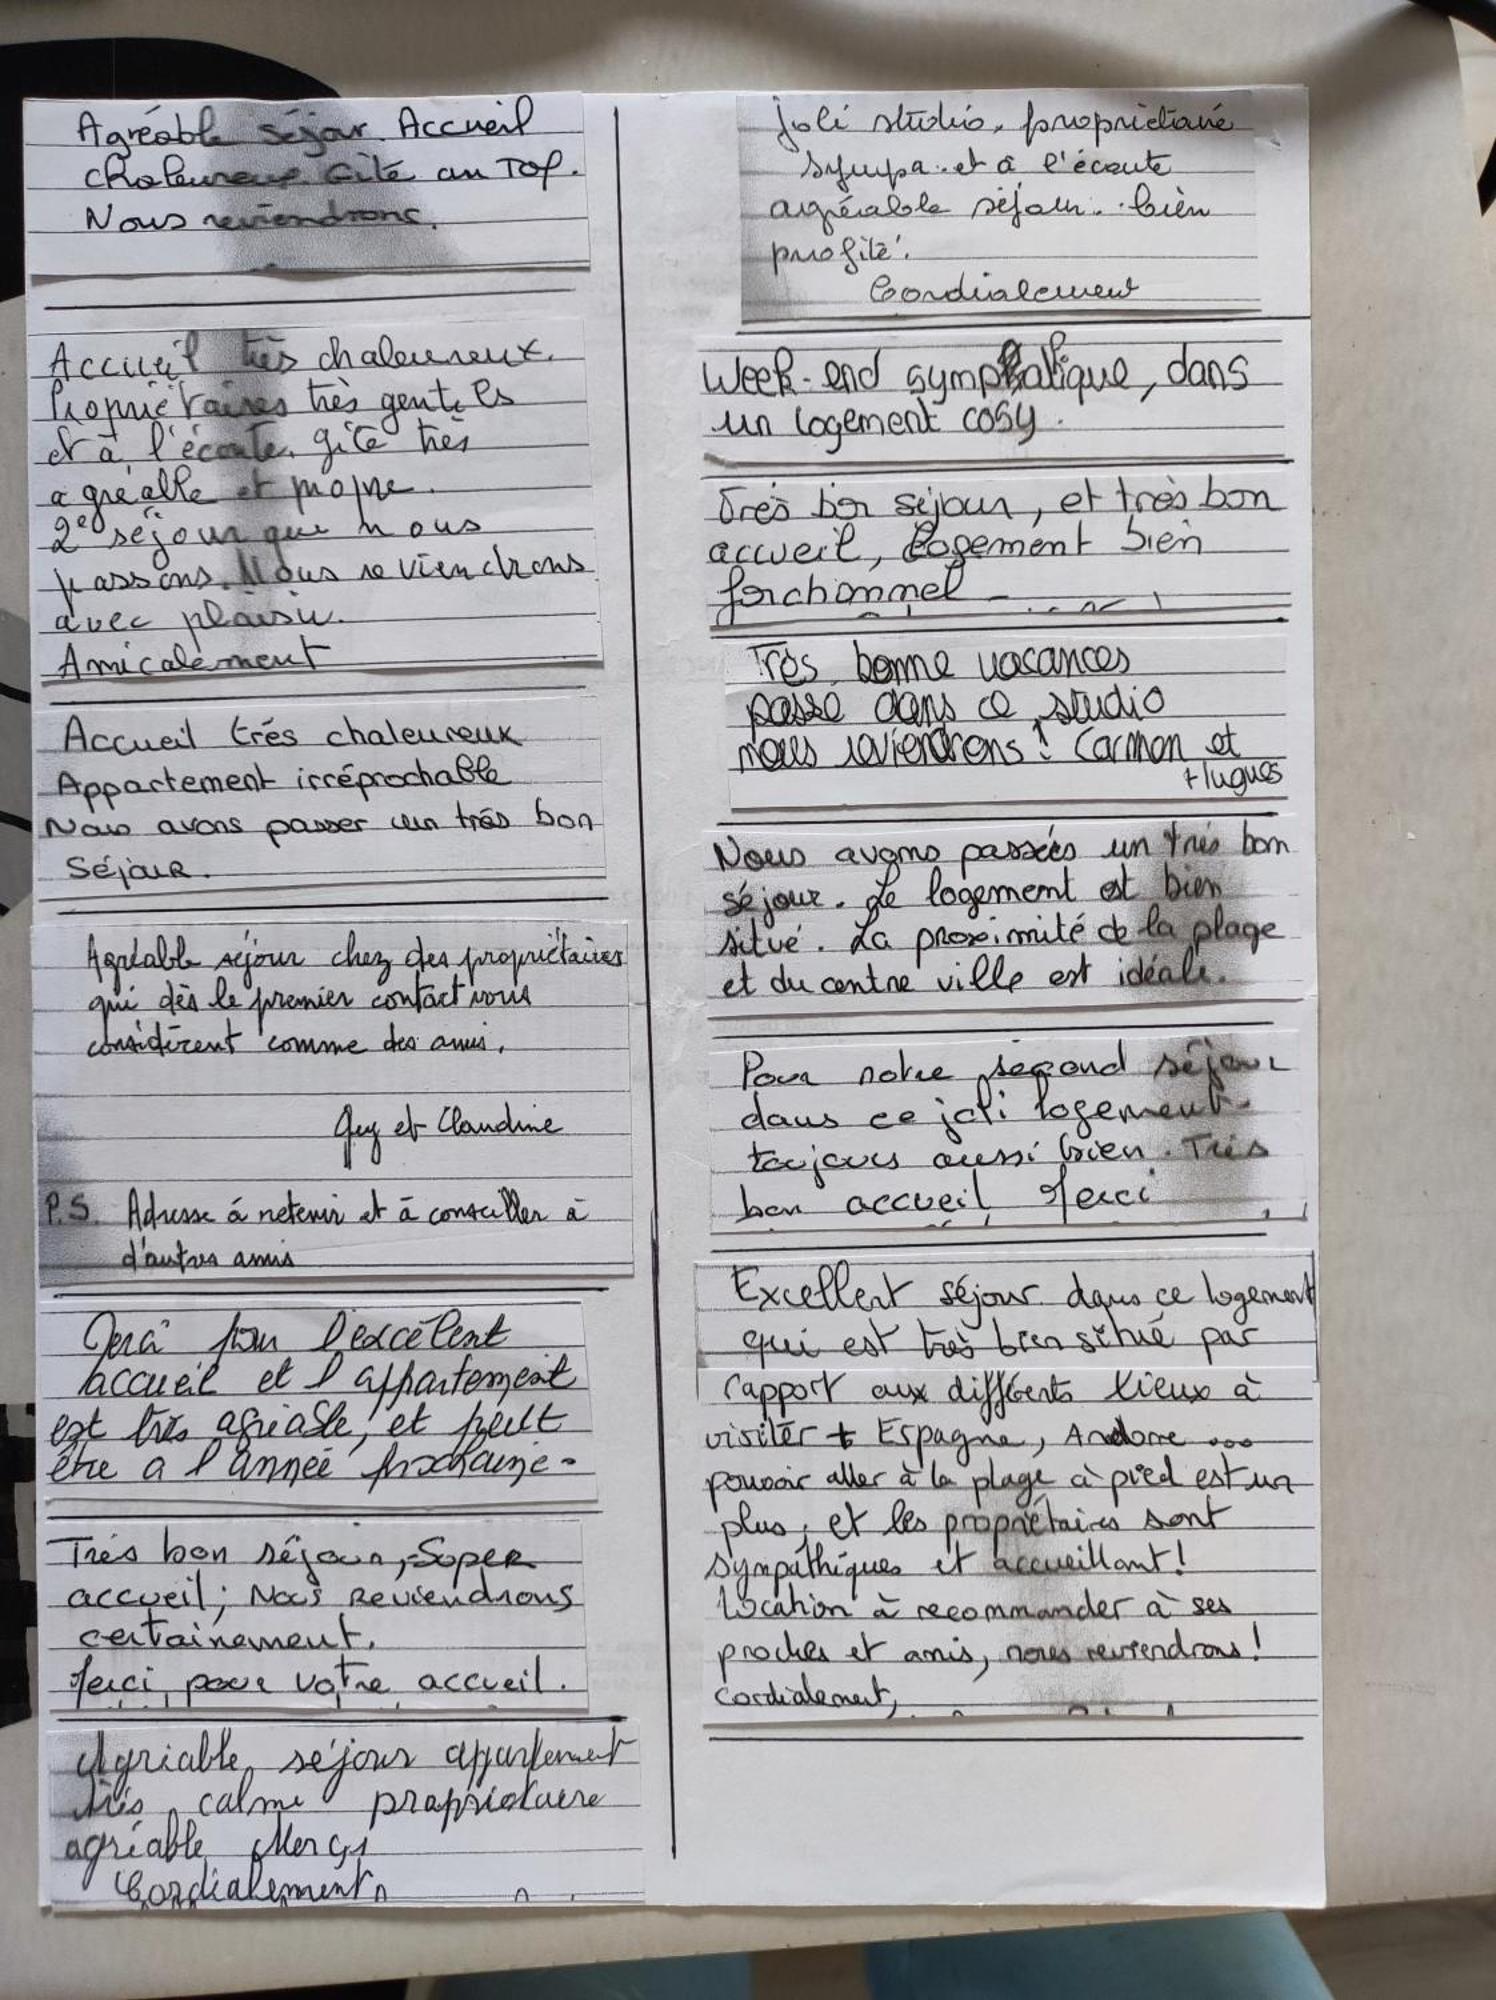 Agréable séjour. Accueil
chaleureux. Gîte au TOP.
Nous reviendrons.
Accueil très chaleureux.
Propriétaires très gentils
et à l'écoute. gîte très
agréable et propre.
2e séjour que nous
passons. Nous reviendrons
avec plaisir.
Amicalement
Accueil trés chaleureux
Appartement irréprochable
Nous avons passer un trés bon
Séjour.
Agréable séjour chez des propriétaires
qui dès le premier contact vous
considèrent comme des amis.
Guy et Claudine
P.S. Adresse à retenir et à conseiller à
d'autres amis
Merci pour l'excelent
accueil et l'appartement
est très agréable, et peut
être a l'année prochaine.
Trés bon séjour, Super
accueil; Nous Reviendrons
certainement.
Merci pour votre accueil.
Agréable séjour appartement
très calme propriétaire
agréable Merci
Cordialement
Joli studio, propriétaire
sympa et à l'écoute
agréable séjour. bien
profité.
Cordialement
Week-end symphatique, dans
un logement cosy.
Très bon séjour, et très bon
accueil, logement bien
fonctionnel
Très bonne vacances
passe dans ce studio
nous reviendrons! Carmen et
Hugues
Nous avons passées un trés bon
séjour. Le logement est bien
situé. La proximité de la plage
et du centre ville est idéale.
Pour notre second séjour
dans ce joli logement.
toujours aussi bien. Trés
bon accueil Merci
Excellent séjour dans ce logement
qui est très bien situé par
rapport aux différents lieux à
visiter + Espagne, Andorre ...
pouvoir aller à la plage à pied est un
plus, et les propriétaires sont
sympathiques et accueillant!
Location à recommander à ses
proches et amis, nous reviendrons!
Cordialement,